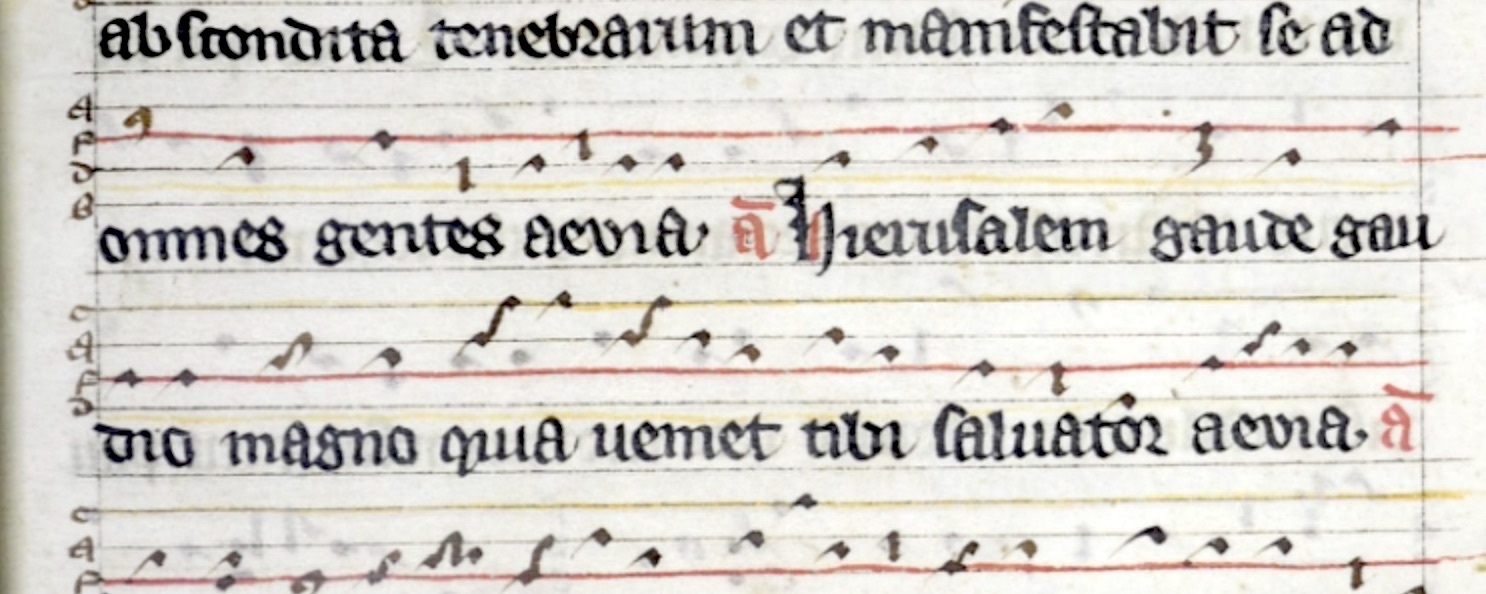 abscondita tenebrarum et manifestabit se ad
omnes gentes aevia. ā Hierusalem gaude gau
dio magno quia veniet tibi salvator aevia. ā